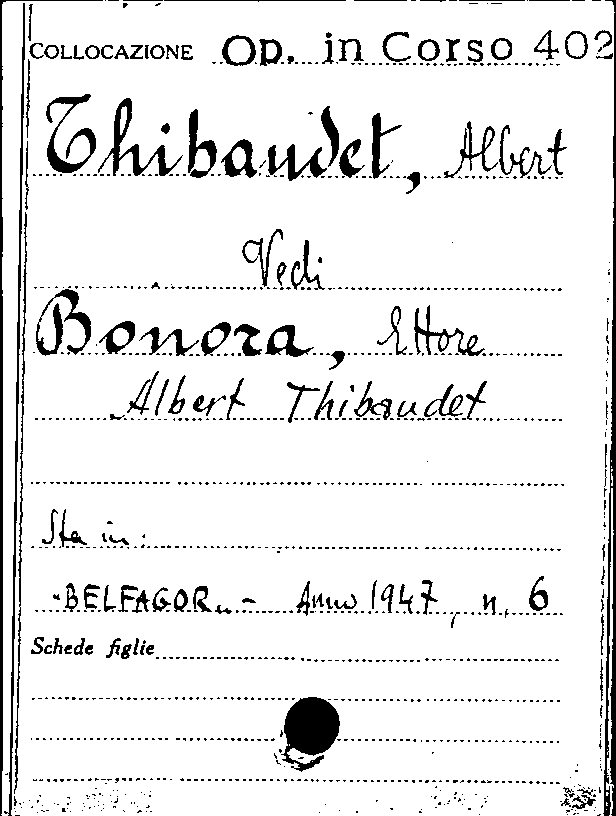 COLLOCAZIONE Op. in Corso 402
Thibaudet, Albert
Vedi
Bonora, Ettore
Albert Thibaudet
Sta in:
"BELFAGOR" - Anno 1947, n. 6
Schede figlie